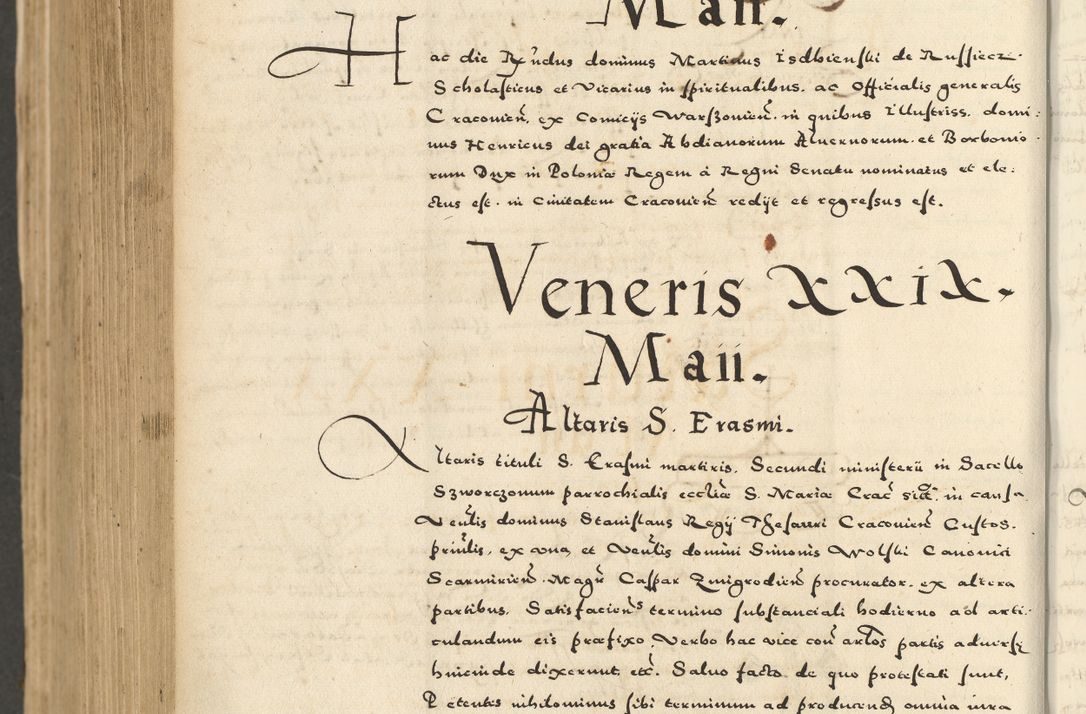 Maii.
Hac die Rndus dominus Martinus Isdbienski de Russiecz
Scholasticus et Vicarius in spiritualibus. ac Officialis generalis
Cracovien. ex Comicijs Warszovien. in quibus Illustriss. domi:
nus Henricus dei gratia Abdianorum Alvernorum. et Borbonio
rum Dux in Poloniæ Regem á Regni Senatu nominatus et ele:
ctus est. in Civitatem Cracovien redijt et regressus est.
Veneris XXIX.
Maii.
Altaris S. Erasmi.
Altaris tituli S. Erasmi martiris. Secundi ministerii in Sacello
Szworczonum parrochialis eccliæ S. Mariæ Crac sitæ. in causa
Venlis dominus Stanislaus Regij Thesauri Cracovien Custos.
prinlis. ex una, et Venlis domini Simonis Wolski Canonici
Scarmirien. Magr Caspar Zmigrodien procurator. ex altera
partibus. Satisfaciens termino substanciali hodierno ad arti:
culandum eis præfixo. Verbo hac vice con artlos partis adversæ
hincinde dixerunt etc. Salvo facto. de quo protestati sunt,
Petentes nihilominus sibi terminum ad producend omnia iura